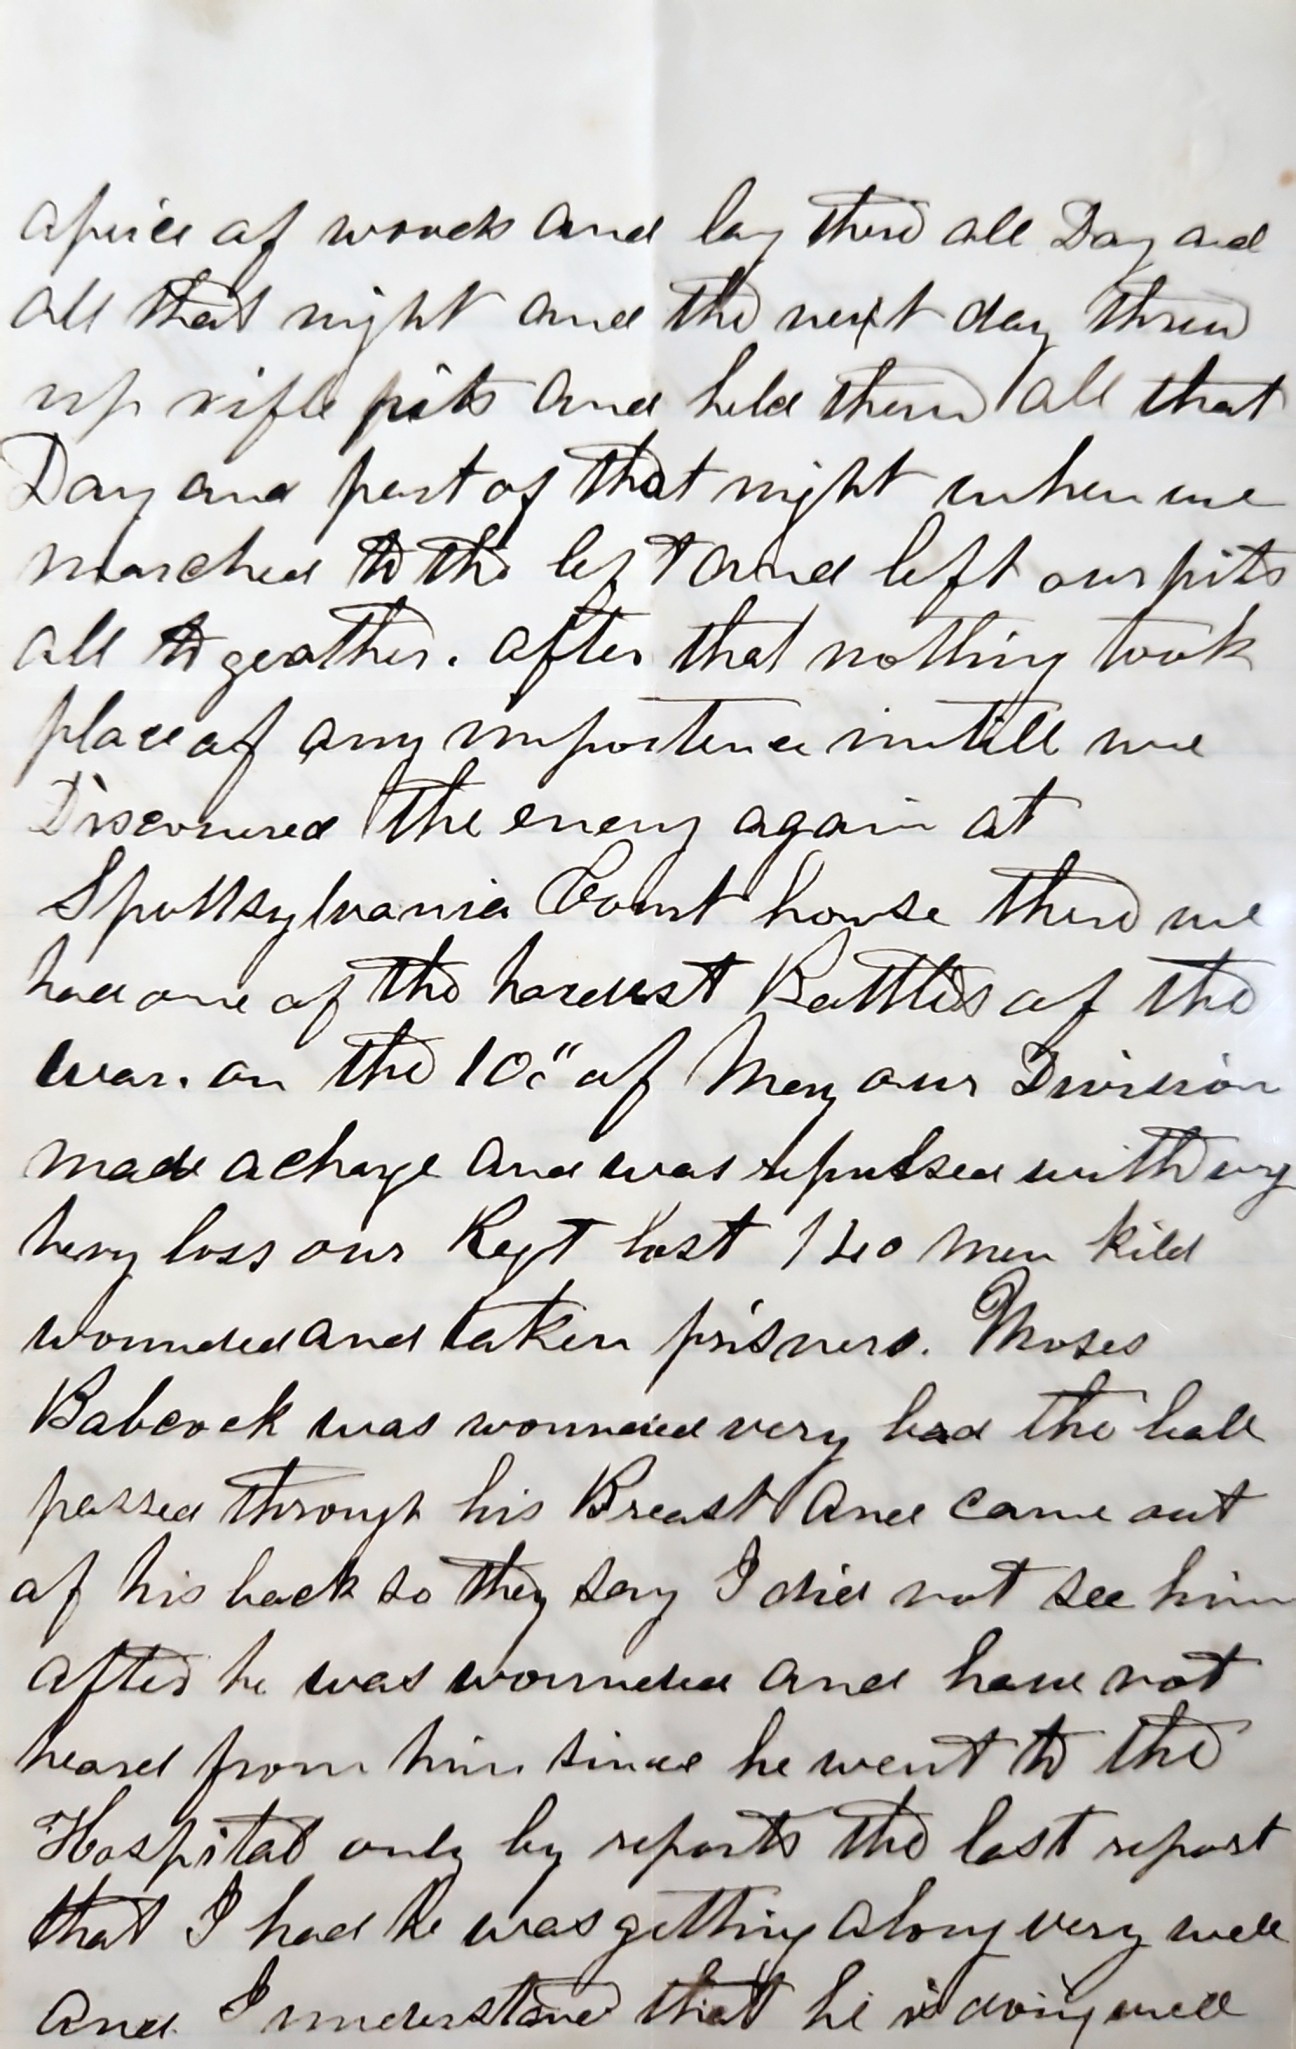 apiece of woods and lay there all Day and
all that night and the next day threw
up rifle pits and held them all that
Day and part of that night when we
marched to the left and left our pits
all to geather. after that nothing took
place of any importence untill we
Discovered the enemy again at
Spottsylvania Court house there we
had one of the hardest Battles of the
war. on the 10" of May our Division
made a charge and was repulsed with very
hevy loss our Regt lost 140 men kild
wounded and taken prisners. Moses
Babcock was wounded very bad the ball
passed through his Breast and came out
of his back so they say I did not see him
after he was wounded and have not
heard from him since he went to the
Hospital only by reports the last report
that I had he was getting along very well
and I understand that he is doing well